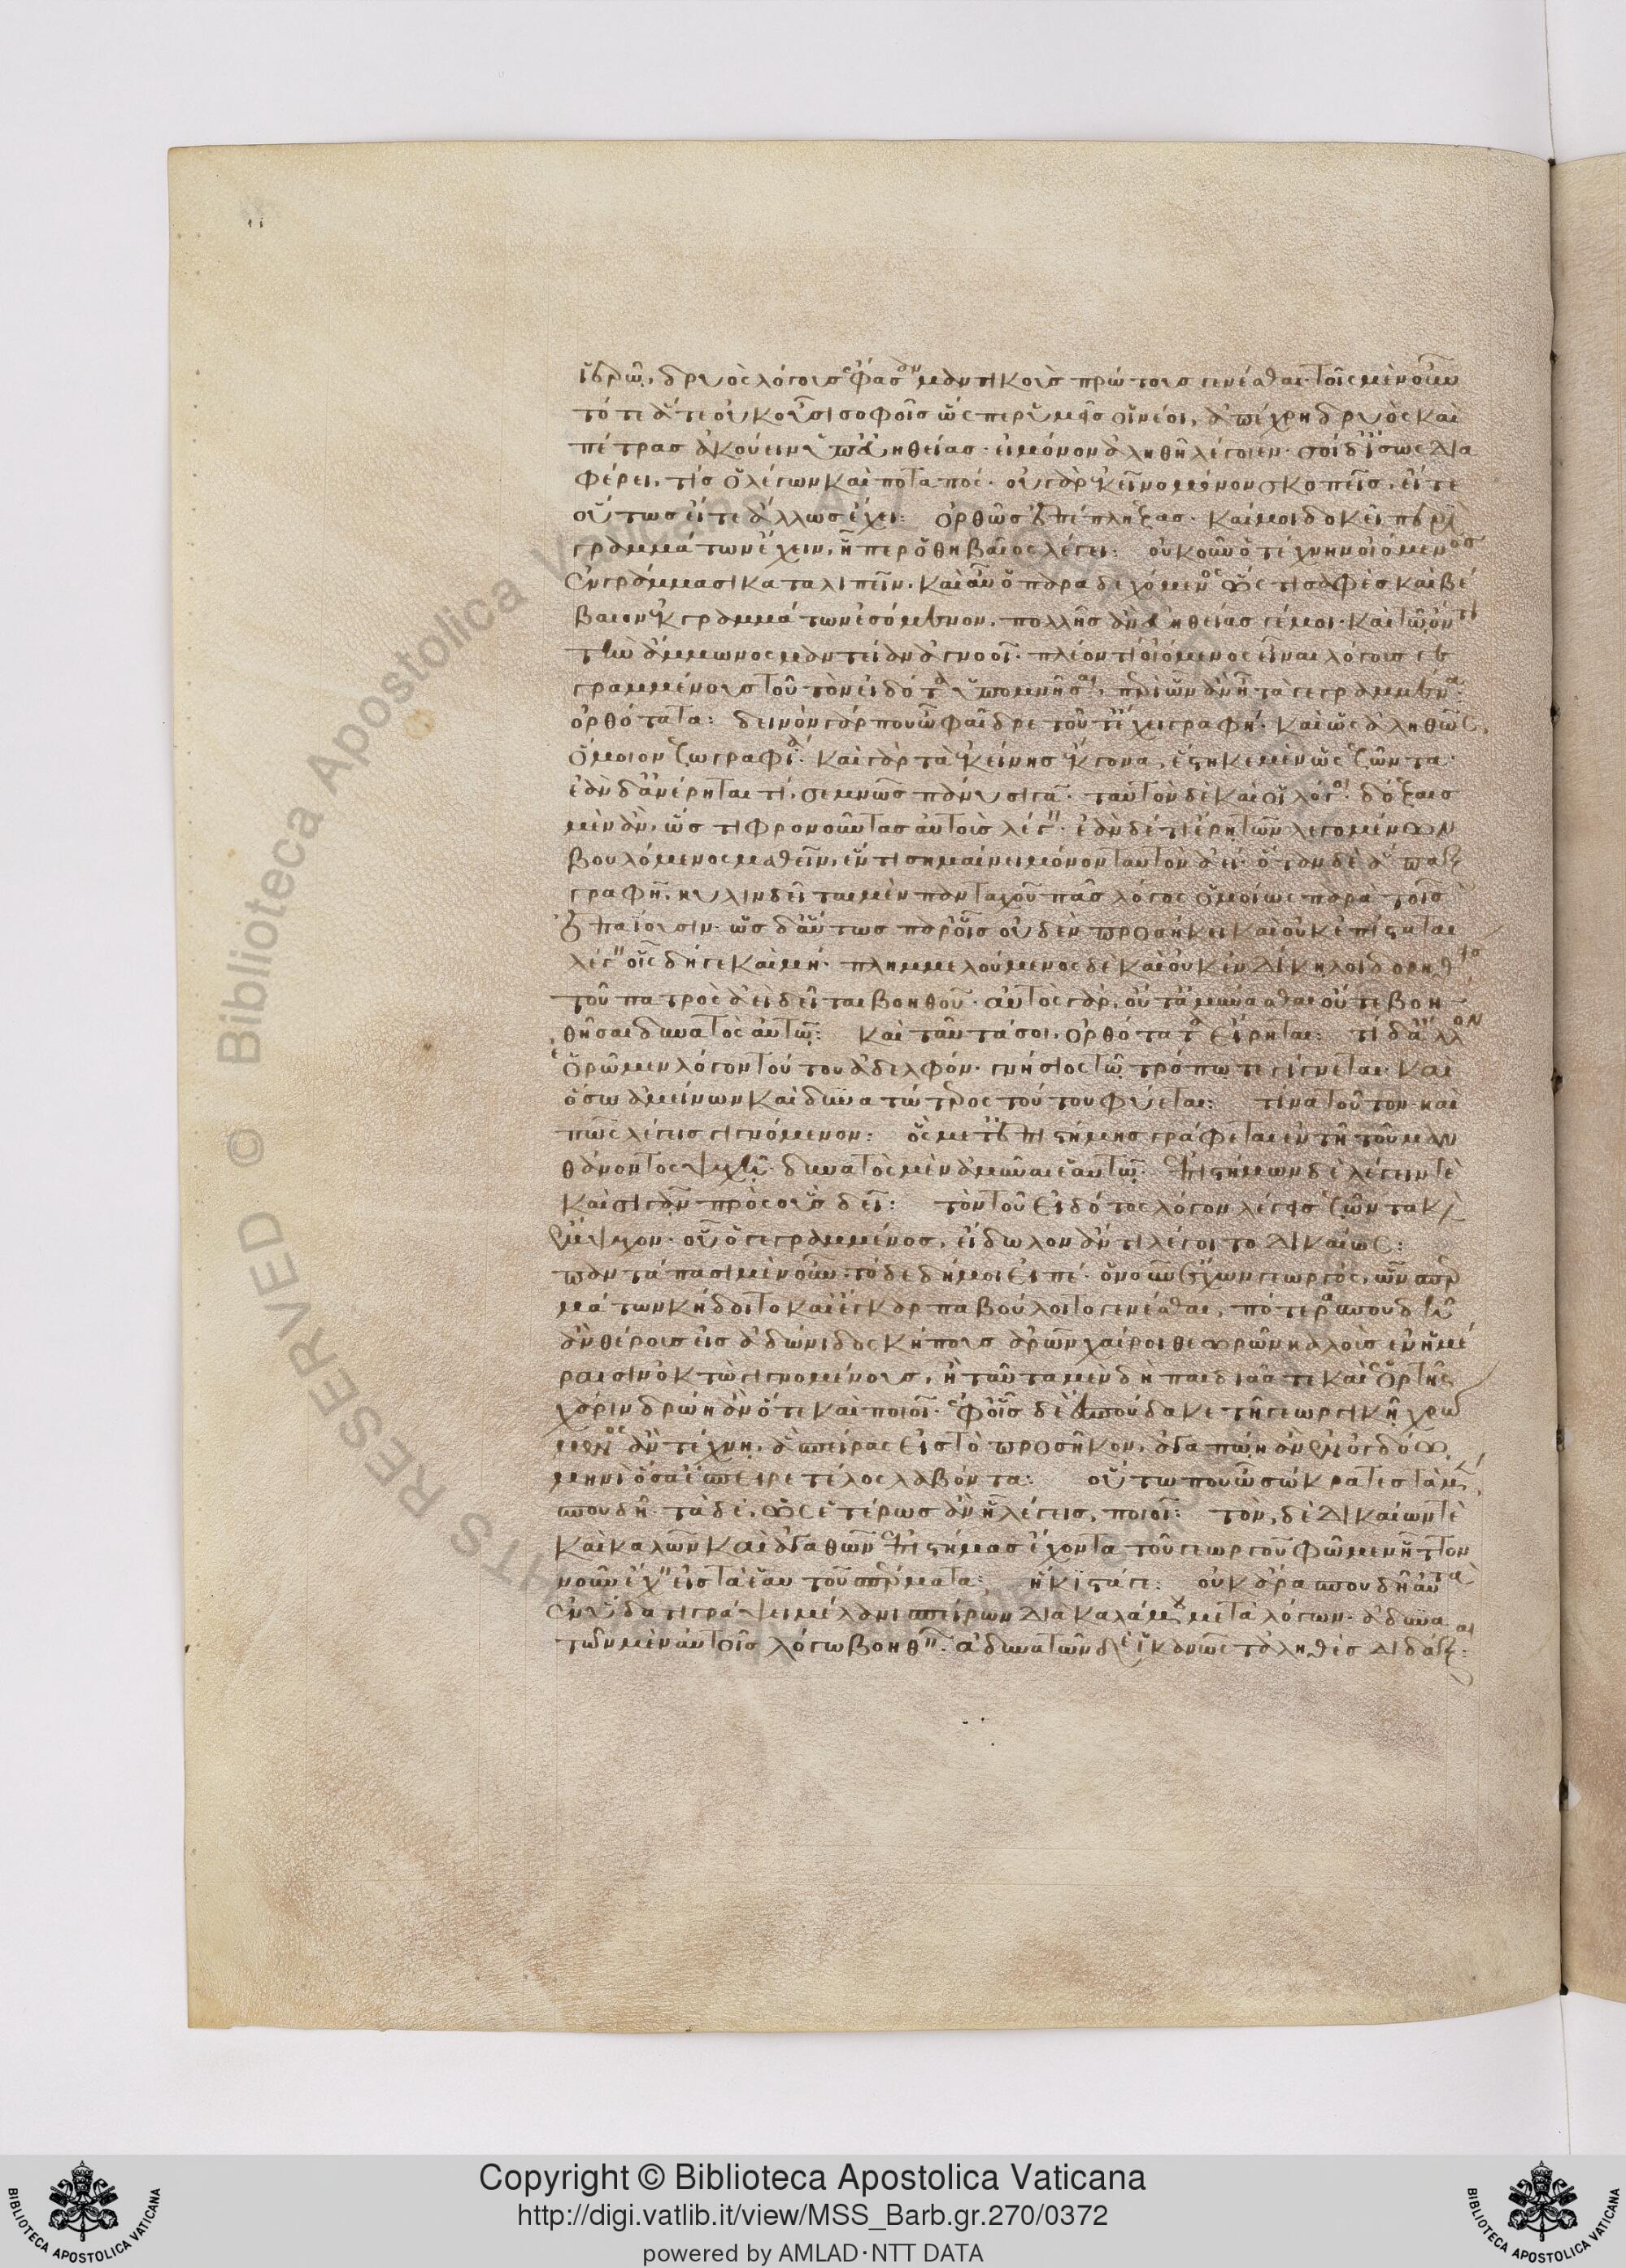 ἱερῷ, δρυὸς λόγους ἔφασαν μαντικοὺς πρώτους γενέσθαι· τοῖς μὲν οὖν
τότε ἅτε οὐκ οὖσι σοφοῖς ὥσπερ ὑμεῖς οἱ νέοι, ἀπέχρη δρυὸς καὶ
πέτρας ἀκούειν ὑπ' εὐηθείας· εἰ μόνον ἀληθῆ λέγοιεν· σοὶ δ' ἴσως δια
φέρει, τίς ὁ λέγων καὶ ποταπός· οὐ γὰρ ἐκεῖνο μόνον σκοπεῖς, εἴτε
οὕτως εἴτε ἄλλως ἔχει: ὀρθῶς ἐπέπληξας· καί μοι δοκεῖ περὶ
γραμμάτων ἔχειν, ᾗπερ ὁ θηβαῖος λέγει: οὐκοῦν ὁ τέχνην οἰόμενος
ἐν γράμμασι καταλιπεῖν, καὶ αὖ ὁ παραδεχόμενος ὥς τι σαφὲς καὶ βέ
βαιον ἐκ γραμμάτων ἐσόμενον, πολλῆς ἂν εὐηθείας γέμοι· καὶ τῷ ὄντι
τὴν ἄμμωνος μαντείαν ἀγνοοῖ· πλέον τι οἰόμενος εἶναι λόγους γε
γραμμένους τοῦ τὸν εἰδότα ὑπομνῆσαι, περὶ ὧν ἂν ᾖ τὰ γεγραμμένα:
ὀρθότατα: δεινὸν γάρ που ὦ φαῖδρε τοῦτ' ἔχει γραφή· καὶ ὡς ἀληθῶς
ὅμοιον ζωγραφίᾳ· καὶ γὰρ τὰ ἐκείνης ἔκγονα, ἕστηκε μὲν ὡς ζῶντα·
ἐὰν δ' ἀνέρηταί τι, σεμνῶς πάνυ σιγᾷ· ταὐτὸν δὲ καὶ οἱ λόγοι· δόξαις
μὲν ἄν, ὥς τι φρονοῦντας αὐτοὺς λέγειν· ἐὰν δέ τι ἔρῃ τῶν λεγομένων
βουλόμενος μαθεῖν, ἕν τι σημαίνει μόνον ταὐτὸν ἀεί· ὅταν δὲ ἅπαξ
γραφῇ, κυλινδεῖται μὲν πανταχοῦ πᾶς λόγος ὁμοίως παρὰ τοῖς
ἐπαΐουσιν· ὡς δ' αὕτως παρ' οἷς οὐδὲν προσήκει καὶ οὐκ ἐπίσταται
λέγειν οἷς δεῖ γε καὶ μή· πλημμελούμενος δὲ καὶ οὐκ ἐν δίκῃ λοιδορηθεὶς
τοῦ πατρὸς ἀεὶ δεῖται βοηθοῦ· αὐτὸς γάρ, οὔτ' ἀμύνασθαι οὔτε βοη
θῆσαι δυνατὸς αὑτῷ: καὶ ταῦτά σοι, ὀρθότατα εἴρηται: τί δ' ἄλλον
ὁρῶμεν λόγον τούτου ἀδελφόν· γνήσιος τῷ τρόπῳ τε γίγνεται· καὶ
ὅσῳ ἀμείνων καὶ δυνατώτερος τούτου φύεται: τίνα τοῦτον καὶ
πῶς λέγεις γιγνόμενον: ὃς μετ' ἐπιστήμης γράφεται ἐν τῇ τοῦ μαν
θάνοντος ψυχῇ· δυνατὸς μὲν ἀμῦναι ἑαυτῷ· ἐπιστήμων δὲ λέγειν τὲ
καὶ σιγᾶν πρὸς οὓς δεῖ: τὸν τοῦ εἰδότος λόγον λέγεις ζῶντα καὶ
ἔμψυχον· οὗ ὁ γεγραμμένος, εἴδωλον ἄν τι λέγοιτο δικαίως:
παντάπασι μὲν οὖν· τόδε δή μοι εἰπέ· ὁ νοῦν ἔχων γεωργός, ὧν σπερ
μάτων κήδοιτο καὶ ἔγκαρπα βούλοιτο γενέσθαι, πότερα σπουδῇ
ἂν θέρους εἰς ἀδώνιδος κήπους ἀρῶν χαίροι θεωρῶν καλοὺς ἐν ἡμέ
ραισιν ὀκτὼ γιγνομένους, ἢ ταῦτα μὲν δὴ παιδιᾶς τε καὶ ἑορτῆς
χάριν δρῴη ἂν ὅτε καὶ ποιοῖ· ἐφ' οἷς δὲ ἐσπούδακε τῇ γεωργικῇ χρώ
μενος ἂν τέχνῃ, σπείρας εἰς τὸ προσῆκον, ἀγαπῴη ἂν ἐν ὀγδόῳ
μηνὶ ὅσα ἔσπειρε τέλος λαβόντα: οὕτω που ὦ σώκρατες τὰ μὲν
σπουδῇ· τὰ δέ, ὡς ἑτέρως ἂν ᾗ λέγεις, ποιοῖ: τὸν, δὲ δικαίων τὲ
καὶ καλῶν καὶ ἀγαθῶν ἐπιστήμας ἔχοντα τοῦ γεωργοῦ φῶμεν ἧττον
νοῦν ἔχειν εἰς τὰ ἑαυτοῦ σπέρματα: ἥκιστά γε: οὐκ ἄρα σπουδῇ αὐτὰ
ἐν ὕδατι γράψει μέλανι σπείρων διὰ καλάμου μετὰ λόγων· ἀδυνά
των μὲν αὑτοῖς λόγῳ βοηθεῖν· ἀδυνάτων δὲ ἱκανῶς τἀληθῆ διδάξαι:
Copyright © Biblioteca Apostolica Vaticana
http://digi.vatlib.it/view/MSS_Barb.gr.270/0372
powered by AMLAD·NTT DATA